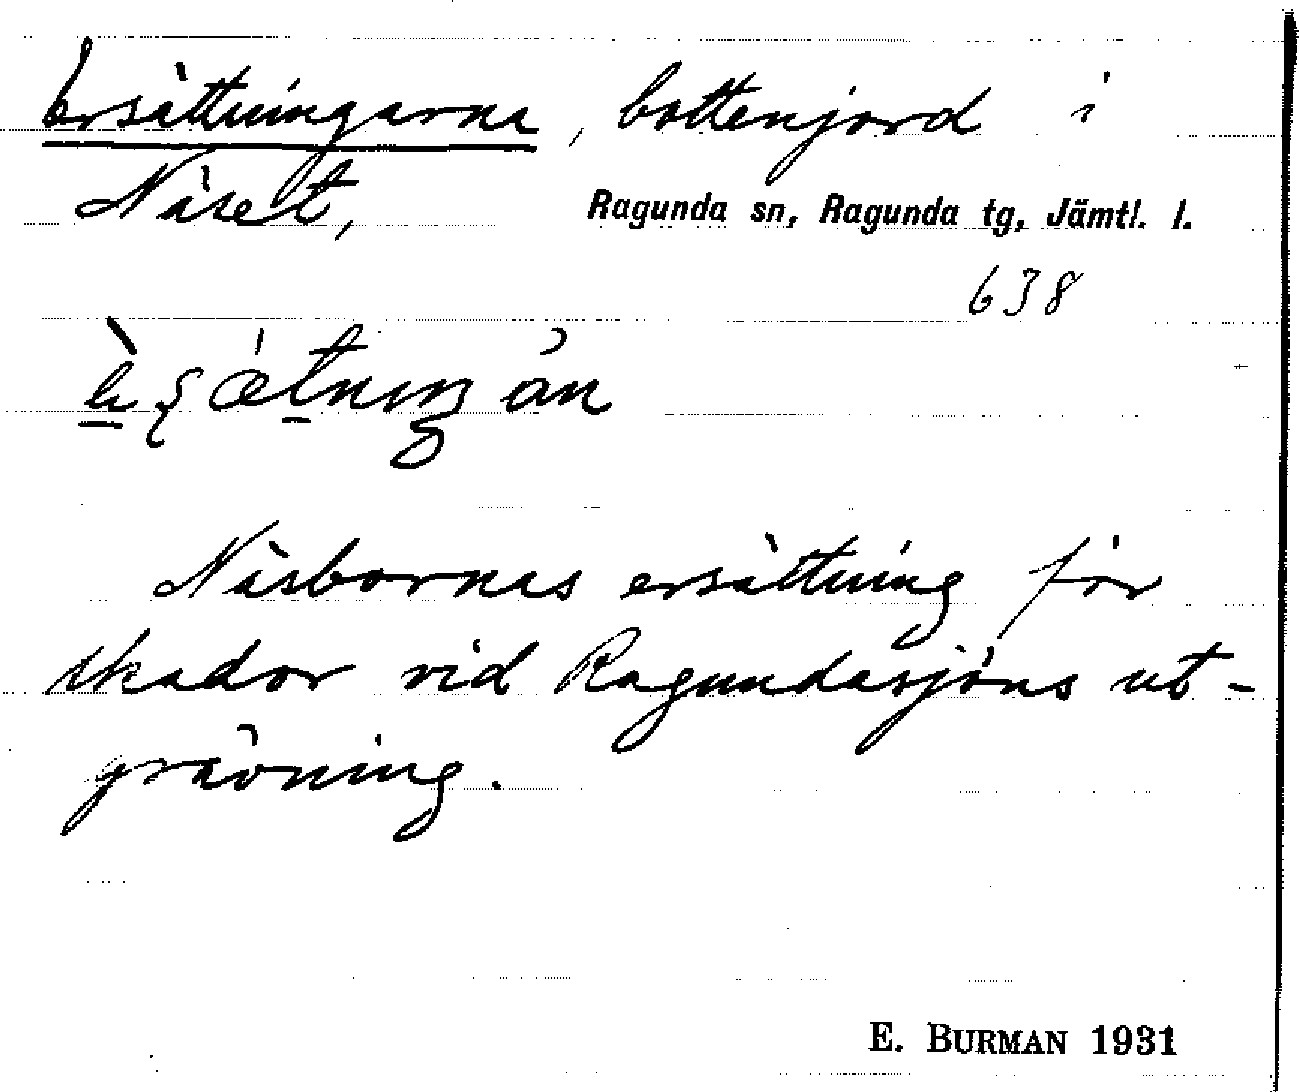 Ersättningarna, bottenjord i
Näset,
Ragunda sn, Ragunda tg, Jämtl. l.
638
Näsbornas ersättning för
skador vid Ragundasjöns ut-
grävning.
E. BURMAN 1931